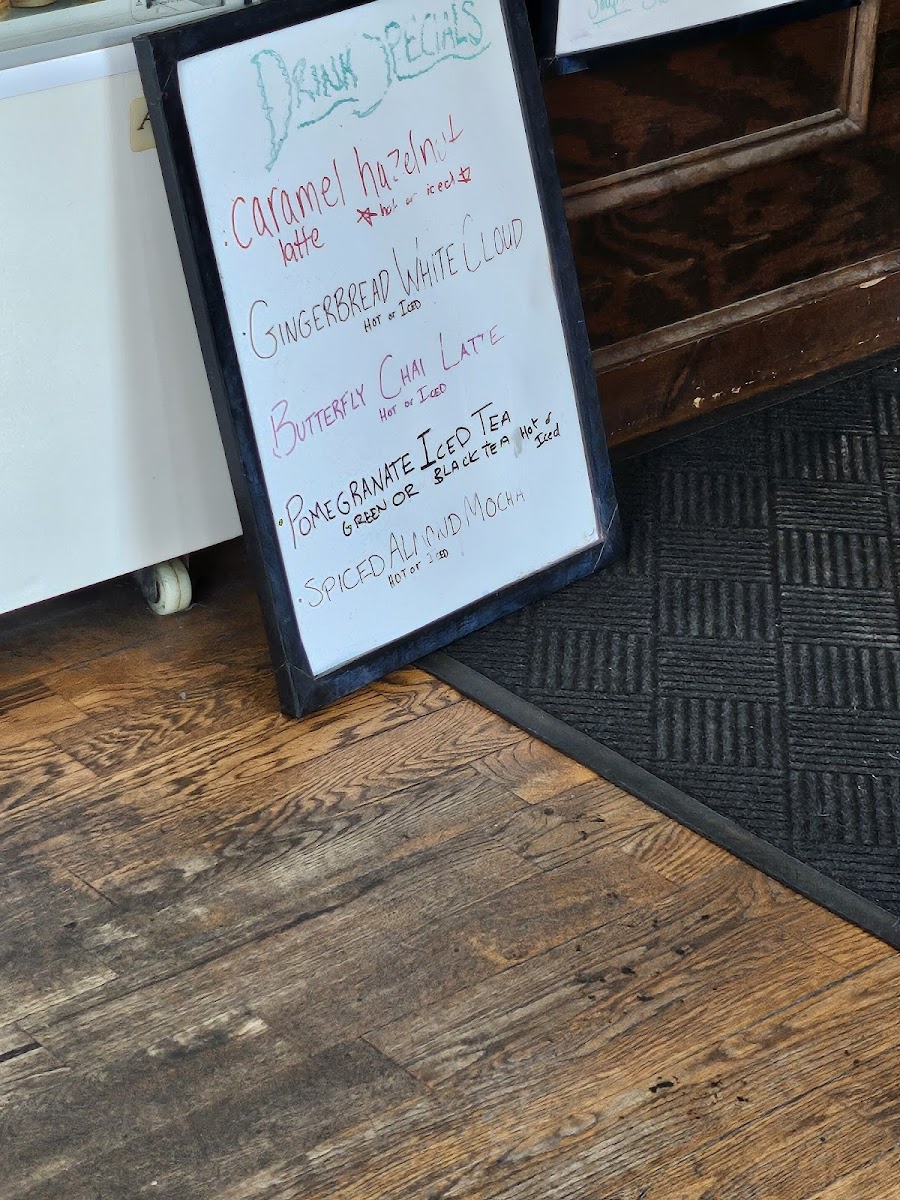 DRINK SPECIALS
· Caramel hazelnut
latte ☆ hot or iced ☆
· GINGERBREAD WHITE CLOUD
HOT or ICED
· BUTTERFLY CHAI LATTE
HOT or ICED
· POMEGRANATE ICED TEA
GREEN OR BLACK TEA Hot or
Iced
· SPICED ALMOND MOCHA
HOT or ICED